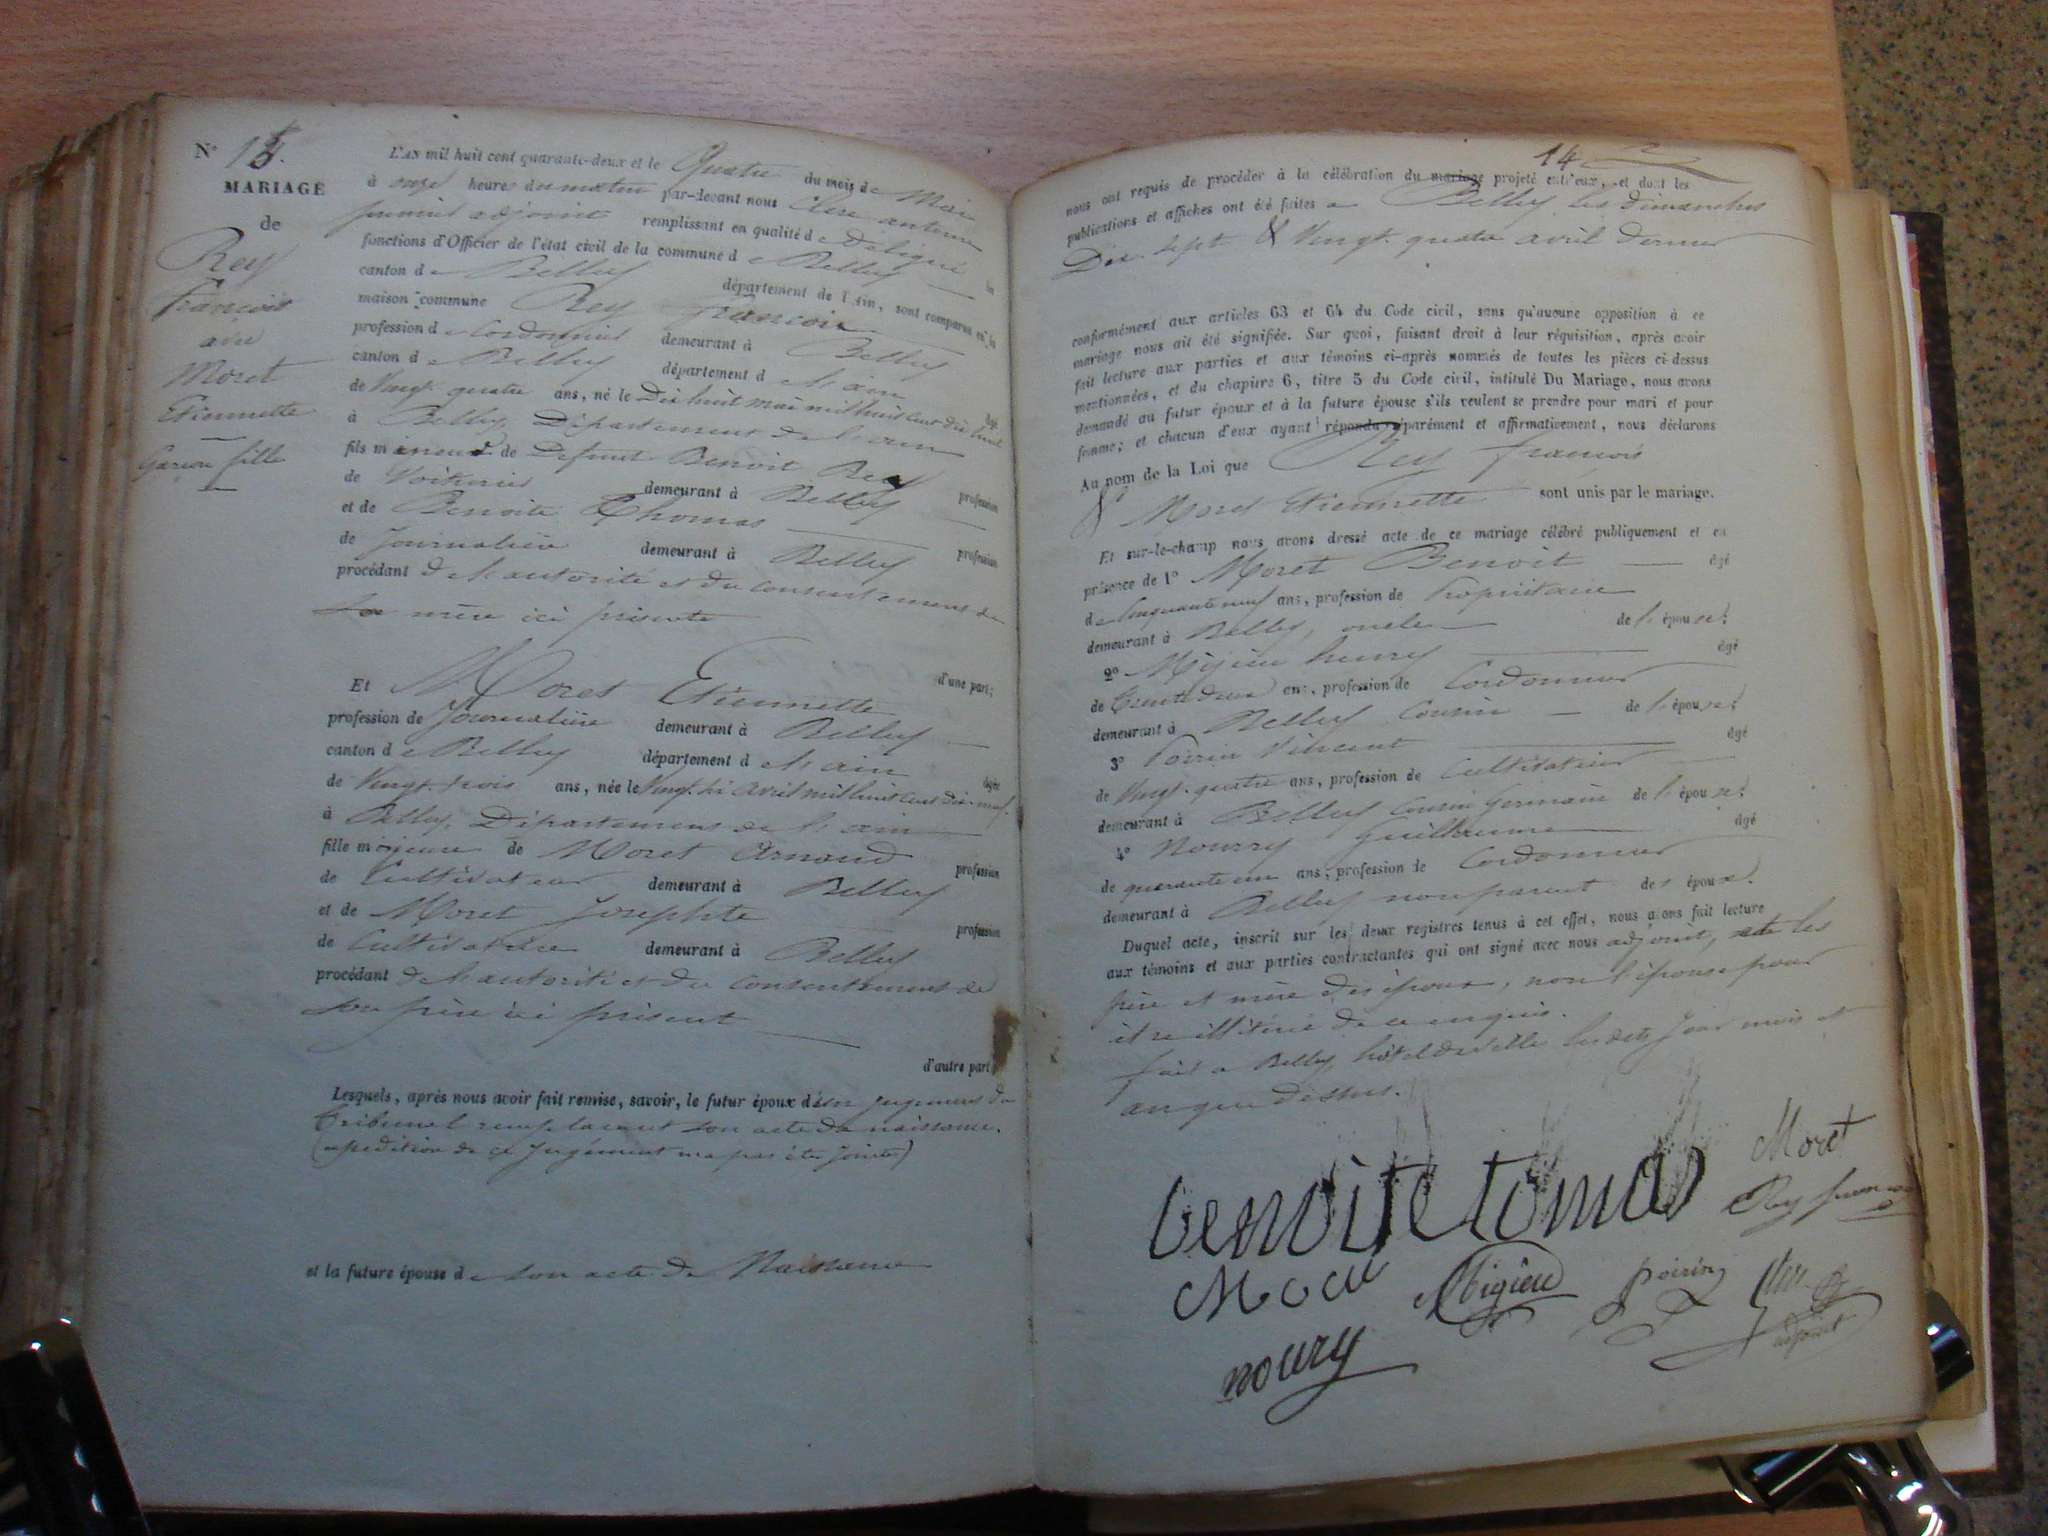 N° 15.
MARIAGE
de
Rey
François
avec
Moret
Etiennette
Garçon fille
L'AN mil huit cent quarante-deux et le Quatre du mois de Mai
à onze heures du matin par-devant nous Clerc antoine
premier adjoint remplissant en qualité de Délégué les
fonctions d'Officier de l'état civil de la commune de Belley
canton de Belley département de l'Ain, sont comparus en la
maison commune Rey François
profession de Cordonnier demeurant à Belley
canton de Belley département de l'ain âgé
de Vingt quatre ans, né le Dix huit mai mil huit cent dix huit
à Belley, Département de l'ain
fils mineur de Defunt Benoit Rey profession
de Voiturier demeurant à Belley
et de Benoite Thomas profession
de Journalière demeurant à Belley
procédant de l'autorité et du consentement de
Sa mère ici présente
d'une part;
Et Moret Etiennette
profession de Journalière demeurant à Belley
canton de Belley département de l'ain âgée
de Vingt trois ans, née le Vingt six avril mil huit cent dix neuf
à Belley, Département de l'ain
fille majeure de Moret Arnaud profession
de Cultivateur demeurant à Belley
et de Moret Josephte profession
de Cultivatrice demeurant à Belley
procédant de l'autorité et du consentement de
son père ici présent
d'autre part
Lesquels, après nous avoir fait remise, savoir, le futur époux d'un jugement du
Tribunal remplacant son acte de naissance.
(expédition de ce Jugement n'a pas été Jointe)
et la future épouse de son acte de Naissance
14
nous ont requis de procéder à la célébration du mariage projeté entr'eux, et dont les
publications et affiches ont été faites à Belley les dimanches
Dix-sept & Vingt quatre avril dernier
conformément aux articles 63 et 64 du Code civil, sans qu'aucune opposition à ce
mariage nous ait été signifiée. Sur quoi, faisant droit à leur réquisition, après avoir
fait lecture aux parties et aux témoins ci-après nommés de toutes les pièces ci-dessus
mentionnées, et du chapitre 6, titre 5 du Code civil, intitulé Du Mariage, nous avons
demandé au futur époux et à la future épouse s'ils veulent se prendre pour mari et pour
femme; et chacun d'eux ayant répondu séparément et affirmativement, nous déclarons
Au nom de la Loi que Rey françois
& Moret Etiennette sont unis par le mariage.
Et sur-le-champ nous avons dressé acte de ce mariage célébré publiquement et en
présence de 1° Moret Benoit âgé
de Cinquante neuf ans, profession de Propriétaire
demeurant à Belley, oncle de l'épouse.
2° Migieu henry âgé
de Trente deux ans, profession de Cordonnier
demeurant à Belley Cousin de l'épouse.
3° Poirin Vincent âgé
de Vingt-quatre ans, profession de Cultivateur
demeurant à Belley Cousin Germain de l'épouse.
4° Nourry Guillaume âgé
de quarante un ans, profession de Cordonnier
demeurant à Belley non parent des époux.
Duquel acte, inscrit sur les deux registres tenus à cet effet, nous avons fait lecture
aux témoins et aux parties contractantes qui ont signé avec nous adjoint, les
père et mère des époux, non l'épouse pour
être illitérée de ce enquis.
fait à Belley, hôtel de ville les dits Jour mois et
an que dessus.
benoite tomas
Moret
Rey francois
Migieu
poirin
adjoint
noury